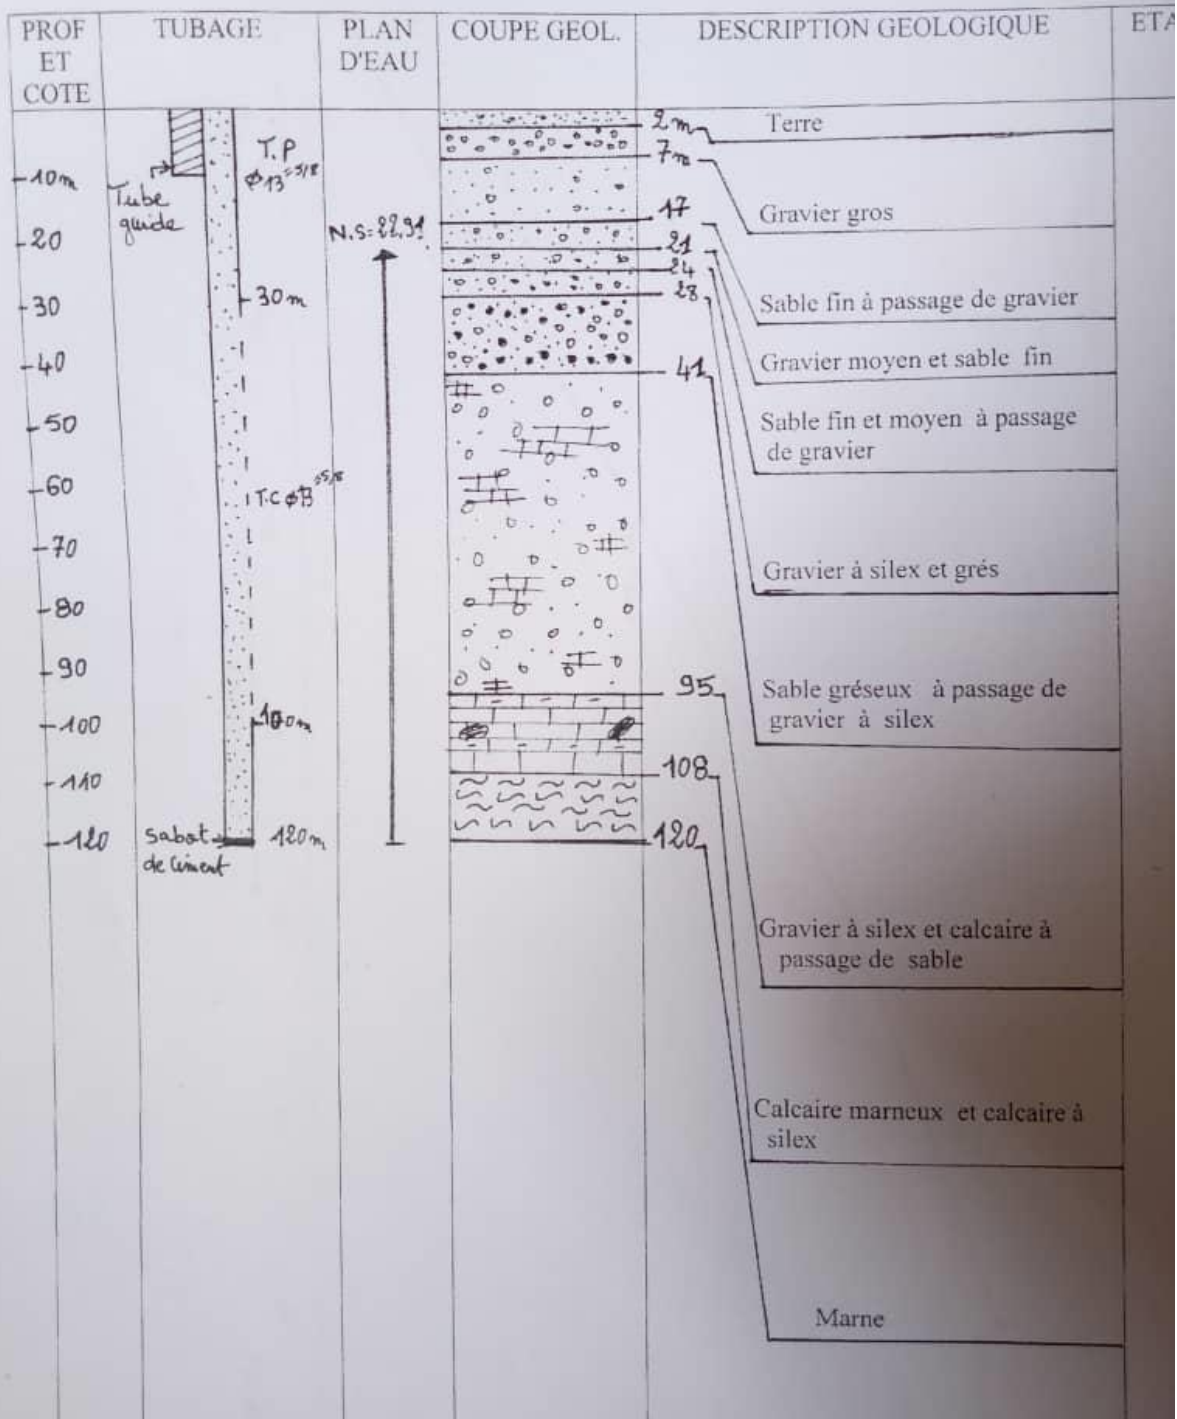 PROF
ET
COTE
TUBAGE
PLAN
D'EAU
COUPE GEOL.
DESCRIPTION GEOLOGIQUE
ETA
10m
20
30
40
50
60
70
80
90
100
110
120
Tube
guide
T.P
Ø 13 5/8
30m
T.C Ø 13 5/8
100m
Sabot
de Ciment
120m
N.S=22.91
2m
7m
17
21
24
28
41
95
108
120
Terre
Gravier gros
Sable fin à passage de gravier
Gravier moyen et sable fin
Sable fin et moyen à passage
de gravier
Gravier à silex et grés
Sable gréseux à passage de
gravier à silex
Gravier à silex et calcaire à
passage de sable
Calcaire marneux et calcaire à
silex
Marne